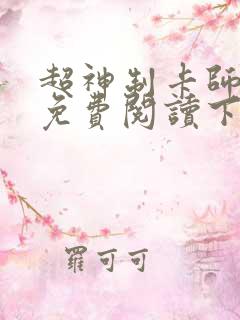 超神制卡師
免費閱讀下
羅可可